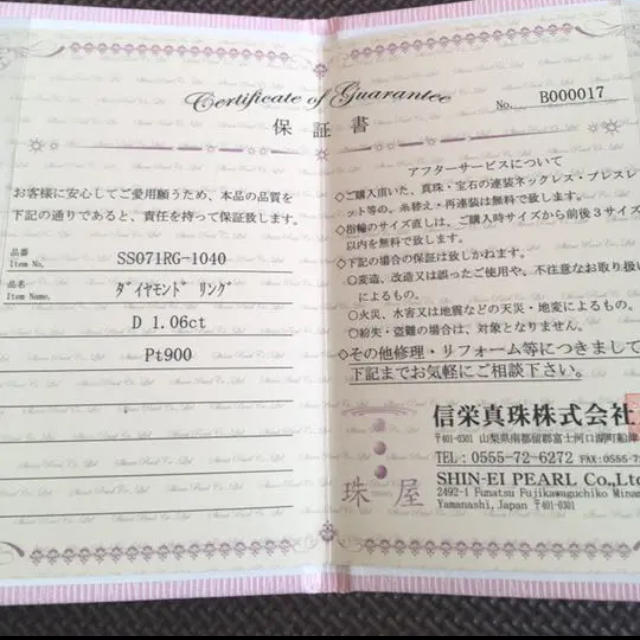 Certificate of Guarantee
保証書
No. B000017
お客様に安心してご愛用願うため、本品の品質を
下記の通りであると、責任を持って保証致します。
品番
Item No. SS071RG-1040
品名
Item Name. ﾀﾞｲﾔﾓﾝﾄﾞ ﾘﾝｸﾞ
D 1.06ct
Pt900
アフターサービスについて
◇ご購入頂いた、真珠・宝石の連装ネックレス・ブレスレ
ット等の。糸替え・再連装は無料で致します。
◇指輪のサイズ直しは、ご購入時サイズから前後3サイズ
以内を無料で致します。
◇下記の場合の保証は致しかねます。
○変造、改造又は誤ったご使用や、不注意なお取り扱い
によるもの。
○火災、水害又は地震などの天災・地変によるもの。
○紛失・盗難の場合は、対象となりません。
◇その他修理・リフォーム等につきまして
下記までお気軽にご相談下さい。
珠屋
信栄真珠株式会社
〒401-0301 山梨県南都留郡富士河口湖町船津
TEL: 0555-72-6272 FAX:0555-7
SHIN-EI PEARL Co.,Ltd
2492-1 Funatsu Fujikawaguchiko Mina
Yamanashi, Japan 〒401-0301